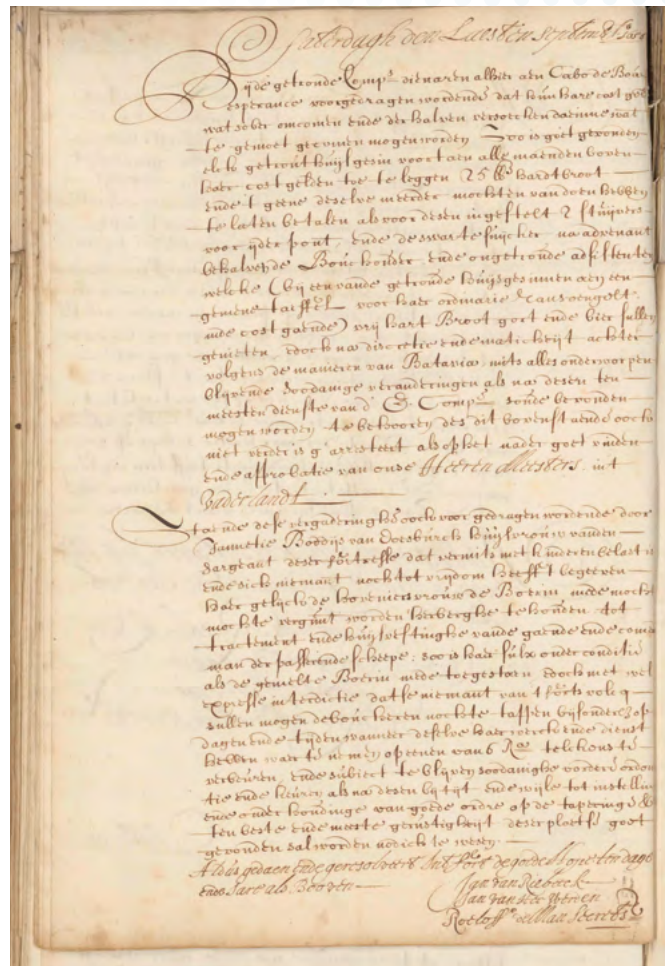 Saterdagh den Laesten septemb 1656
Bij de getroude Comp.s dienaren alhier aen Cabo de Boa
esperance voorgedragen wordende dat hun hare cost gelt
wat sober omcomen ende derhalven versoecken daerinne wat
te gemoet gecomen mogen worden Soo is goet gevonden
elck getrout huijsgesin voortaen alle maenden boven
haer costgelden toe te leggen 25 lb hardtbroot
ende 't geene deselve meerder mochten van doen hebben
te laten betalen als voor desen ingestelt 2 stuijvers
voor ijder pont, ende de swarte suijcker na advenant
behalven de Bouchouder, ende ongetroude adsistenten
welche (bij een vande getroude huijsgesinnen aen een
gemene taeffel voor haer ordinarie
mde cost gaende) vrij hart Broot gort ende bier sullen
genieten, doch na discretie ende maticheijt achter
volgens de manieren van Batavia, mits alles onderworpen
blijvende soodanige veranderingen als na desen ten
meesten dienste van d' E. Comp.e sonde bevonden
mogen worden te behooren des dit bovenstaende oock
niet verder is g'arresteert als op het nader goet vinden
ende approbatie van onse Heeren Meesters int
vaderlandt.
Staende dese vergaderingh oock voorgedragen wordende door
Jannetie Boddijs van Doesburch huijsvrouw vanden
Sargeant deser fortresse dat vermits met kinderen belast is
ende sich niemant noch tot vrijdom heefft begeven
haer gelijck de hoveniers vrouw de Boerin mede mocht
mochte vergunt worden herberghe te houden tot
tractement ende huijsvestinghe vande gaende ende comen
man der passerende scheepe, soo is haer sulx onder conditie
als de gemelte Boerin mede toegestaen, doch met wel
expresse interdictie dat se niemant van 't forts volcq
sullen mogen deboucheren nochte tappen bijsonder op
dagen ende tijden wanneer deselve haer werck ende dienst
hebben waer te nemen op peene van 6 Ra. telckens te
verbeuren, ende subiect te blijven soodanighe vordere ordon
tie ende keuren als na desen bij tijt ende wijle tot instellin
ende onderhoudinge van goede ordre op de tapperije
ten beste ende meeste gerustigheijt deser plaetse goet
gevonden sal worden nodich te wesen.
Aldus gedaen ende geresolveert int fort de goede Hope ten dage
ende Jare als Boven
Jan van Riebeeck
Jan van
Roeloff de Man Secret.s